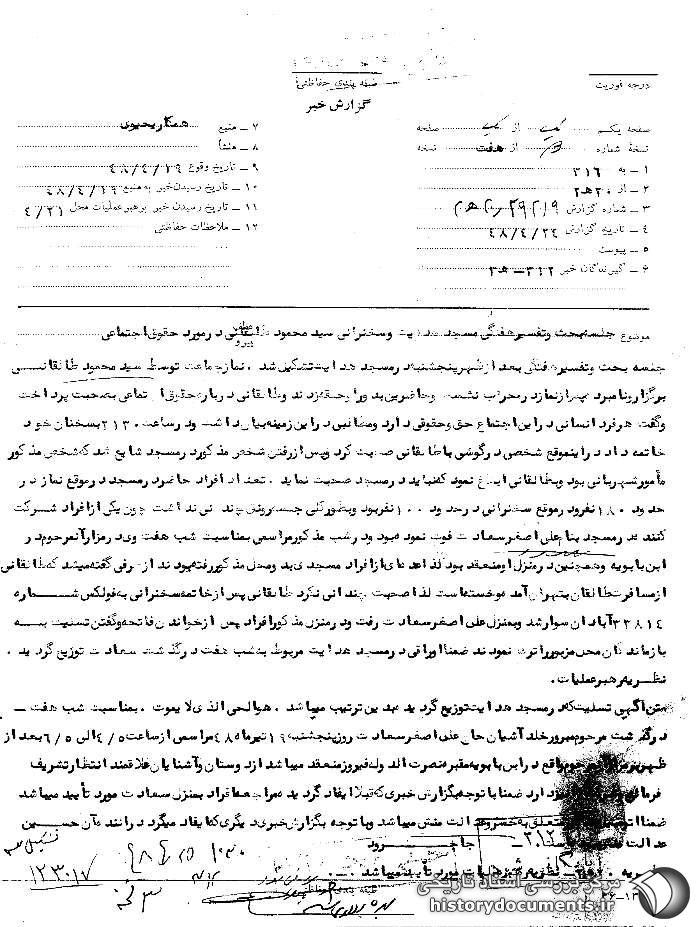 طبقه بندی حفاظتی
درجه فوریت
گزارش خبر
صفحه یکم از یک صفحه
نسخهٔ شماره از هفت نسخه
۱ – به ۳۱۶
۲ – از ۲۰ هـ ۲
۳ – شماره گزارش
۴ – تاریخ گزارش ۴۸/۴/۲۴
۵ – پیوست
۶ – گیرندگان خبر ۳۱۲ – هـ ۳
۷ – منبع همکار یحیوی
۸ – منشأ
۹ – تاریخ وقوع ۴۸/۴/۱۹
۱۰ – تاریخ رسیدن خبر به منبع ۴۸/۴/۱۹
۱۱ – تاریخ رسیدن خبر به رهبر عملیات محل ۴/۲۱
۱۲ – ملاحظات حفاظتی
موضوع جلسه بحث و تفسیر هفتگی مسجد هدایت و سخنرانی سید محمود طالقانی در مورد حقوق اجتماعی
جلسه بحث و تفسیر هفتگی بعد از ظهر پنجشنبه در مسجد هدایت تشکیل شد . نماز جماعت توسط سید محمود طالقانی
برگزار و نامبرده پس از نماز در محراب نشسته و حاضرین بدور او حلقه زدند و طالقانی درباره حقوق اجتماعی صحبت پرداخت
و گفت هر فرد انسانی در این اجتماع حق و حقوقی دارد و مطالبی در این زمینه بیان داشت و در ساعت ۲۱۳۰ بسخنان خود
خاتمه داد در اینموقع شخصی در گوشی با طالقانی صحبت کرد و پس از رفتن شخص مذکور در مسجد شایع شد که شخص مذکور
مأمور شهربانی بود و بطالقانی ابلاغ نمود که نباید در مسجد صحبت نماید . تعداد افراد حاضر در مسجد در موقع نماز در
حدود ۱۸۰ نفر و در موقع سخنرانی در حدود ۱۰۰ نفر بود و بطور کلی جلسه رونق چندانی نداشت چون یکی از افراد شرکت
کننده در مسجد بنام علی اصغر سعادت فوت نموده بود و در شب مذکور مراسمی بمناسبت شب هفت وی در مزار آنمرحوم در
ابن بابویه و همچنین در منزل او منعقد بود لذا عده‌ای از افراد مسجدی به دو محل مذکور رفته بودند از طرفی گفته میشد که طالقانی
از مسافرت طالقان بتهران آمده و خسته است لذا صحبت چندانی نکرد طالقانی پس از خاتمه سخنرانی به فولکس شماره
۳۳۸۱۴ آبادان سوار شد و بمنزل علی اصغر سعادت رفت و در منزل مذکور افراد پس از خواندن فاتحه و گفتن تسلیت به
بازماندگان محل مزبور را ترک نمودند ضمناً اوراقی در مسجد هدایت مربوط به شب هفت درگذشت سعادت توزیع گردید .
نظریه رهبر عملیات .
متن آگهی تسلیت که در مسجد هدایت توزیع گردید بدین ترتیب میباشد . هوالحی الذی لا یموت . بمناسبت شب هفت –
درگذشت مرحوم مبرور خلد آشیان حاج علی اصغر سعادت روز پنجشنبه ۱۹ تیر ماه ۴۸ مراسمی از ساعت ۴/۵ الی ۶/۵ بعد از
ظهر بر مزار آنمرحوم واقع در ابن بابویه مقبره نصرت الدوله فیروز منعقد میباشد از دوستان و آشنایان علاقمند انتظار تشریف
فرمائی دارد ضمناً با توجه بگزارش خبری که قبلاً ایفاد گردید مراجعه افراد بمنزل سعادت مورد تأیید میباشد
ضمناً متعلق به میباشد و با توجه بگزارش خبری دیگری که ایفاد میگردد راننده آن حسین
عدالت
۳۱۲
نظریه . نظریه رهبر عملیات مورد تأیید میباشد .
طبقه بندی حفاظتی
۴۸/۴/۲۵
۱۲۳۰۱۷
مرکز بررسی اسناد تاریخی
historydocuments.ir